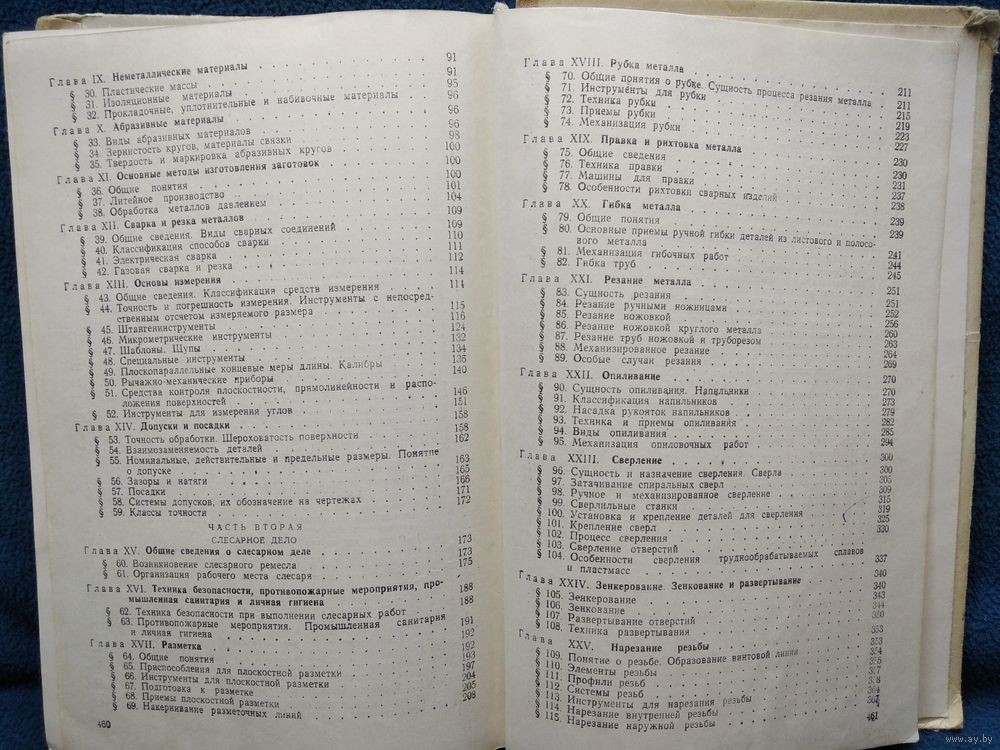 Глава IX. Неметаллические материалы 91
§ 30. Пластические массы 91
§ 31. Изоляционные материалы 95
§ 32. Прокладочные, уплотнительные и набивочные материалы 96
Глава X. Абразивные материалы 96
§ 33. Виды абразивных материалов 96
§ 34. Зернистость кругов, материалы связки 98
§ 35. Твердость и маркировка абразивных кругов 100
Глава XI. Основные методы изготовления заготовок 100
§ 36. Общие понятия 100
§ 37. Литейное производство 101
§ 38. Обработка металлов давлением 104
Глава XII. Сварка и резка металлов 109
§ 39. Общие сведения. Виды сварных соединений 109
§ 40. Классификация способов сварки 110
§ 41. Электрическая сварка 111
§ 42. Газовая сварка и резка 112
Глава XIII. Основы измерения 114
§ 43. Общие сведения. Классификация средств измерения 114
§ 44. Точность и погрешность измерения. Инструменты с непосред-
ственным отсчетом измеряемого размера 115
§ 45. Штангенинструменты 116
§ 46. Микрометрические инструменты 124
§ 47. Шаблоны. Щупы 132
§ 48. Специальные инструменты 134
§ 49. Плоскопараллельные концевые меры длины. Калибры 135
§ 50. Рычажно-механические приборы 140
§ 51. Средства контроля плоскостности, прямолинейности и распо-
ложения поверхностей 146
§ 52. Инструменты для измерения углов 151
Глава XIV. Допуски и посадки 158
§ 53. Точность обработки. Шероховатость поверхности 158
§ 54. Взаимозаменяемость деталей 162
§ 55. Номинальные, действительные и предельные размеры. Понятие
о допуске 163
§ 56. Зазоры и натяги 165
§ 57. Посадки 166
§ 58. Системы допусков, их обозначение на чертежах 171
§ 59. Классы точности 172
ЧАСТЬ ВТОРАЯ
СЛЕСАРНОЕ ДЕЛО
Глава XV. Общие сведения о слесарном деле 173
§ 60. Возникновение слесарного ремесла 173
§ 61. Организация рабочего места слесаря 175
Глава XVI. Техника безопасности, противопожарные мероприятия, про-
мышленная санитария и личная гигиена 188
§ 62. Техника безопасности при выполнении слесарных работ 188
§ 63. Противопожарные мероприятия. Промышленная санитария
и личная гигиена 191
Глава XVII. Разметка 192
§ 64. Общие понятия 192
§ 65. Приспособления для плоскостной разметки 193
§ 66. Инструменты для плоскостной разметки 197
§ 67. Подготовка к разметке 204
§ 68. Приемы плоскостной разметки 205
§ 69. Накернивание разметочных линий 208
460
Глава XVIII. Рубка металла 211
§ 70. Общие понятия о рубке. Сущность процесса резания металла 211
§ 71. Инструменты для рубки 215
§ 72. Техника рубки 219
§ 73. Приемы рубки 223
§ 74. Механизация рубки 227
Глава XIX. Правка и рихтовка металла 230
§ 75. Общие сведения 230
§ 76. Техника правки 231
§ 77. Машины для правки 237
§ 78. Особенности рихтовки сварных изделий 238
Глава XX. Гибка металла 239
§ 79. Общие понятия 239
§ 80. Основные приемы ручной гибки деталей из листового и полосо-
вого металла 241
§ 81. Механизация гибочных работ 244
§ 82. Гибка труб 245
Глава XXI. Резание металла 251
§ 83. Сущность резания 251
§ 84. Резание ручными ножницами 252
§ 85. Резание ножовкой 256
§ 86. Резание ножовкой круглого металла 260
§ 87. Резание труб ножовкой и труборезом 263
§ 88. Механизированное резание 264
§ 89. Особые случаи резания 269
Глава XXII. Опиливание 270
§ 90. Сущность опиливания. Напильники 270
§ 91. Классификация напильников 273
§ 92. Насадка рукояток напильников 279
§ 93. Техника и приемы опиливания 282
§ 94. Виды опиливания 285
§ 95. Механизация опиловочных работ 294
Глава XXIII. Сверление 300
§ 96. Сущность и назначение сверления. Сверла 300
§ 97. Затачивание спиральных сверл 305
§ 98. Ручное и механизированное сверление 309
§ 99. Сверлильные станки 315
§ 100. Установка и крепление деталей для сверления 319
§ 101. Крепление сверл 325
§ 102. Процесс сверления 330
§ 103. Сверление отверстий
§ 104. Особенности сверления труднообрабатываемых сплавов
и пластмасс 337
Глава XXIV. Зенкерование. Зенкование и развертывание 340
§ 105. Зенкерование 340
§ 106. Зенкование 343
§ 107. Развертывание отверстий 344
§ 108. Техника развертывания 350
Глава XXV. Нарезание резьбы 353
§ 109. Понятие о резьбе. Образование винтовой линии 353
§ 110. Элементы резьбы 354
§ 111. Профили резьб 355
§ 112. Системы резьб 357
§ 113. Инструменты для нарезания резьбы 358
§ 114. Нарезание внутренней резьбы 364
§ 115. Нарезание наружной резьбы 367
461
www.ay.by